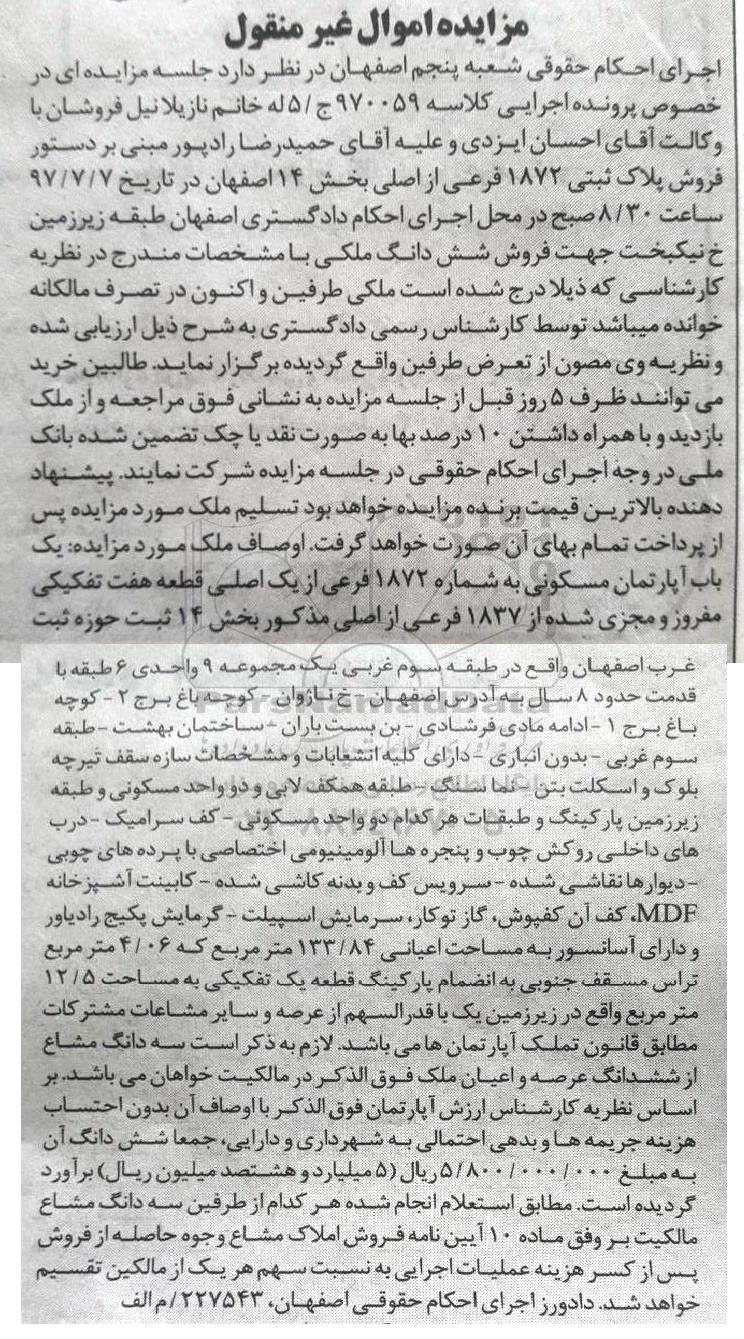 مزایده اموال غیر منقول
اجرای احکام حقوقی شعبه پنجم اصفهان در نظر دارد جلسه مزایده ای در
خصوص پرونده اجرایی کلاسه ۹۷۰۰۵۹ج/۵ له خانم نازیلا نیل فروشان با
وکالت آقای احسان ایزدی و علیه آقای حمیدرضا رادپور مبنی بر دستور
فروش پلاک ثبتی ۱۸۷۲ فرعی از اصلی بخش ۱۴ اصفهان در تاریخ ۹۷/۷/۷
ساعت ۸/۳۰ صبح در محل اجرای احکام دادگستری اصفهان طبقه زیرزمین
خ نیکبخت جهت فروش شش دانگ ملکی با مشخصات مندرج در نظریه
کارشناسی که ذیلا درج شده است ملکی طرفین و اکنون در تصرف مالکانه
خوانده میباشد توسط کارشناس رسمی دادگستری به شرح ذیل ارزیابی شده
و نظریه وی مصون از تعرض طرفین واقع گردیده برگزار نماید. طالبین خرید
می توانند ظرف ۵ روز قبل از جلسه مزایده به نشانی فوق مراجعه و از ملک
بازدید و با همراه داشتن ۱۰ درصد بها به صورت نقد یا چک تضمین شده بانک
ملی در وجه اجرای احکام حقوقی در جلسه مزایده شرکت نمایند. پیشنهاد
دهنده بالاترین قیمت برنده مزایده خواهد بود تسلیم ملک مورد مزایده پس
از پرداخت تمام بهای آن صورت خواهد گرفت. اوصاف ملک مورد مزایده: یک
باب آپارتمان مسکونی به شماره ۱۸۷۲ فرعی از یک اصلی قطعه هفت تفکیکی
مفروز و مجزی شده از ۱۸۳۷ فرعی از اصلی مذکور بخش ۱۴ ثبت حوزه ثبت
غرب اصفهان واقع در طبقه سوم غربی یک مجموعه ۹ واحدی ۶ طبقه با
قدمت حدود ۸ سال به آدرس اصفهان - خ ناژوان - کوچه باغ برج ۲ - کوچه
باغ برج ۱ - ادامه مادی فرشادی - بن بست باران - ساختمان بهشت - طبقه
سوم غربی - بدون انباری - دارای کلیه انشعابات و مشخصات سازه سقف تیرچه
بلوک و اسکلت بتن - نما سنگ - طبقه همکف لابی و دو واحد مسکونی و طبقه
زیرزمین پارکینگ و طبقات هر کدام دو واحد مسکونی - کف سرامیک - درب
های داخلی روکش چوب و پنجره ها آلومینیومی اختصاصی با پرده های چوبی
- دیوارها نقاشی شده - سرویس کف و بدنه کاشی شده - کابینت آشپزخانه
MDF، کف آن کفپوش، گاز توکار، سرمایش اسپیلت - گرمایش پکیج رادیاور
و دارای آسانسور به مساحت اعیانی ۱۳۳/۸۴ متر مربع که ۴/۰۶ متر مربع
تراس مسقف جنوبی به انضمام پارکینگ قطعه یک تفکیکی به مساحت ۱۲/۵
متر مربع واقع در زیرزمین یک با قدرالسهم از عرصه و سایر مشاعات مشترکات
مطابق قانون تملک آپارتمان ها می باشد. لازم به ذکر است سه دانگ مشاع
از ششدانگ عرصه و اعیان ملک فوق الذکر در مالکیت خواهان می باشد. بر
اساس نظریه کارشناس ارزش آپارتمان فوق الذکر با اوصاف آن بدون احتساب
هزینه جریمه ها و بدهی احتمالی به شهرداری و دارایی، جمعا شش دانگ آن
به مبلغ ۵/۸۰۰/۰۰۰/۰۰۰ ریال (۵ میلیارد و هشتصد میلیون ریال) برآورد
گردیده است. مطابق استعلام انجام شده هر کدام از طرفین سه دانگ مشاع
مالکیت بر وفق ماده ۱۰ آیین نامه فروش املاک مشاع وجوه حاصله از فروش
پس از کسر هزینه عملیات اجرایی به نسبت سهم هر یک از مالکین تقسیم
خواهد شد. دادورز اجرای احکام حقوقی اصفهان، ۲۲۷۵۴۳/م الف